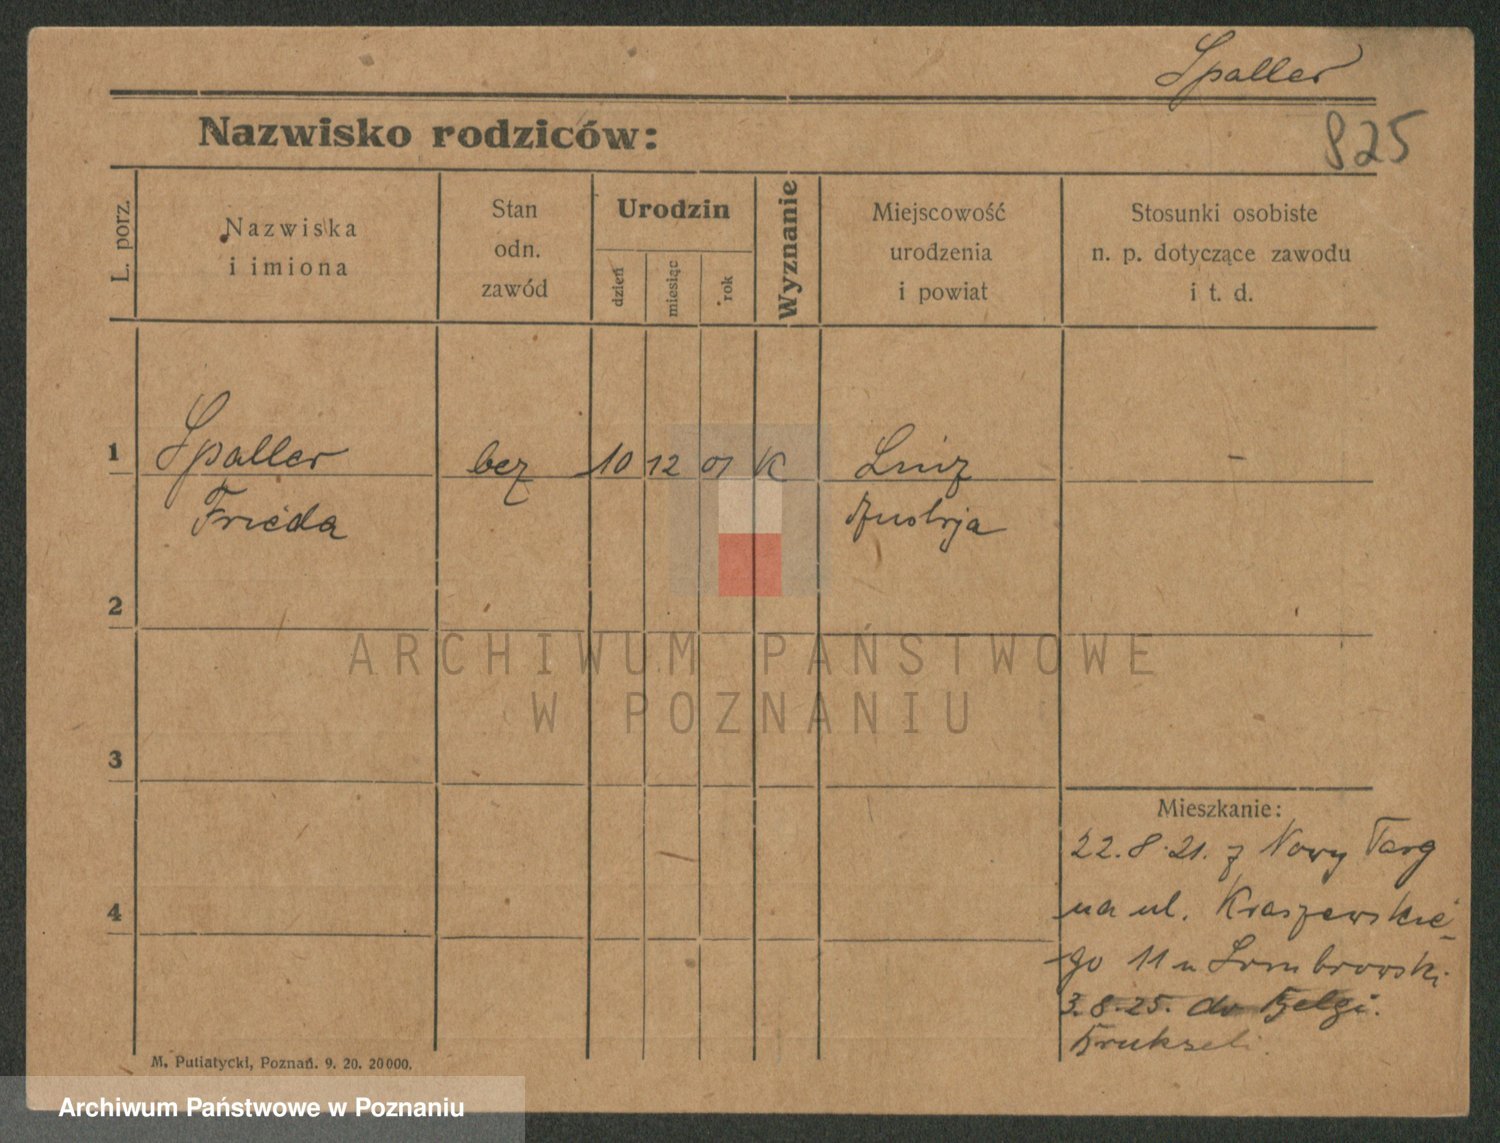 Spaller
825
Nazwisko rodziców:
L. porz.
Nazwiska
i imiona
Stan
odn.
zawód
Urodzin
dzień
miesiąc
rok
Wyznanie
Miejscowość
urodzenia
i powiat
Stosunki osobiste
n. p. dotyczące zawodu
i t. d.
1
Spaller bez 10 12 01 K Linz -
Frieda Austrja
2
3
4
Mieszkanie:
22.8.21. z Nowy Targ
na ul. Kraszewskie-
go 11 u Dombrowski.
3.8.25. do Belgi.
Brukseli.
M. Putiatycki, Poznań. 9. 20. 20000.
ARCHIWUM PAŃSTWOWE
W POZNANIU
Archiwum Państwowe w Poznaniu